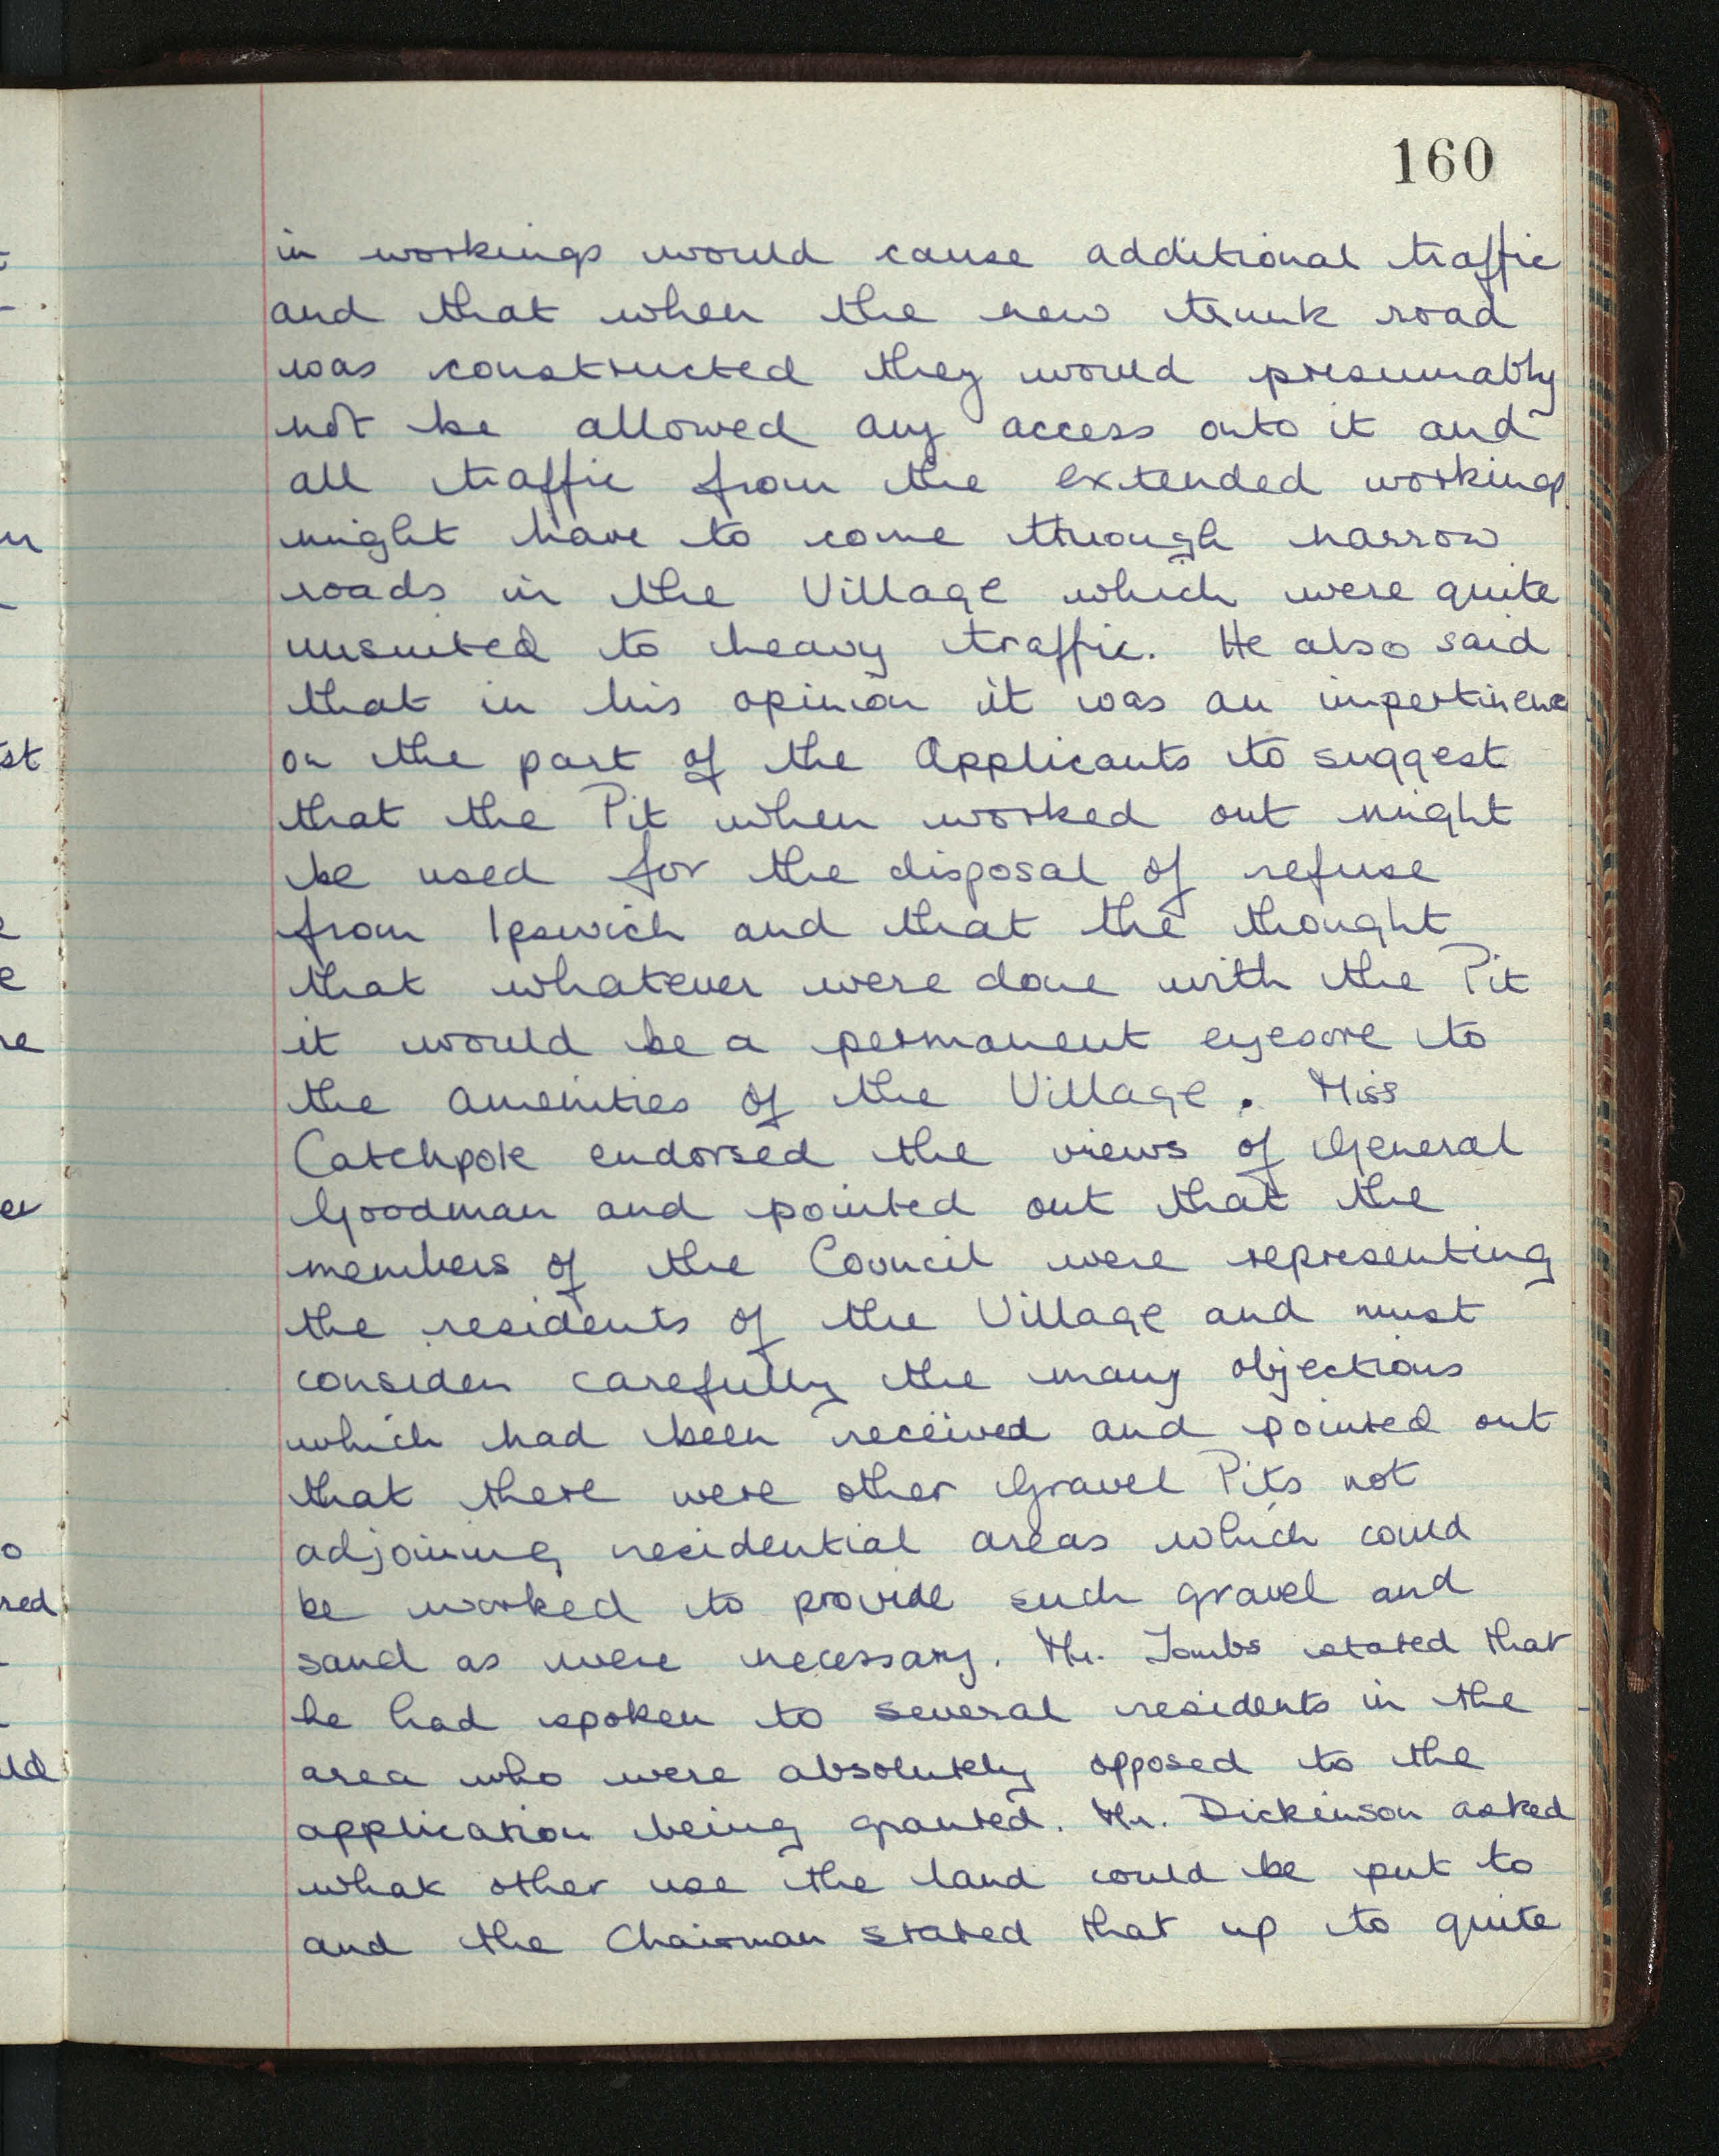 160
in workings would cause additional traffic
and that when the new trunk road
was constructed they would presumably
not be allowed any access onto it and
all traffic from the extended workings
might have to come through narrow
roads in the Village which were quite
unsuited to heavy traffic. He also said
that in his opinion it was an impertinence
on the part of the Applicants to suggest
that the Pit when worked out might
be used for the disposal of refuse
from Ipswich and that the thought
that whatever were done with the Pit
it would be a permanent eyesore to
the amenities of the Village. Miss
Catchpole endorsed the views of General
Goodman and pointed out that the
members of the Council were representing
the residents of the Village and must
consider carefully the many objections
which had been received and pointed out
that there were other Gravel Pits not
adjoining residential areas which could
be worked to provide such gravel and
sand as were necessary. Mr. Tombs stated that
he had spoken to several residents in the
area who were absolutely opposed to the
application being granted. Mr. Dickinson asked
what other use the land could be put to
and the Chairman stated that up to quite